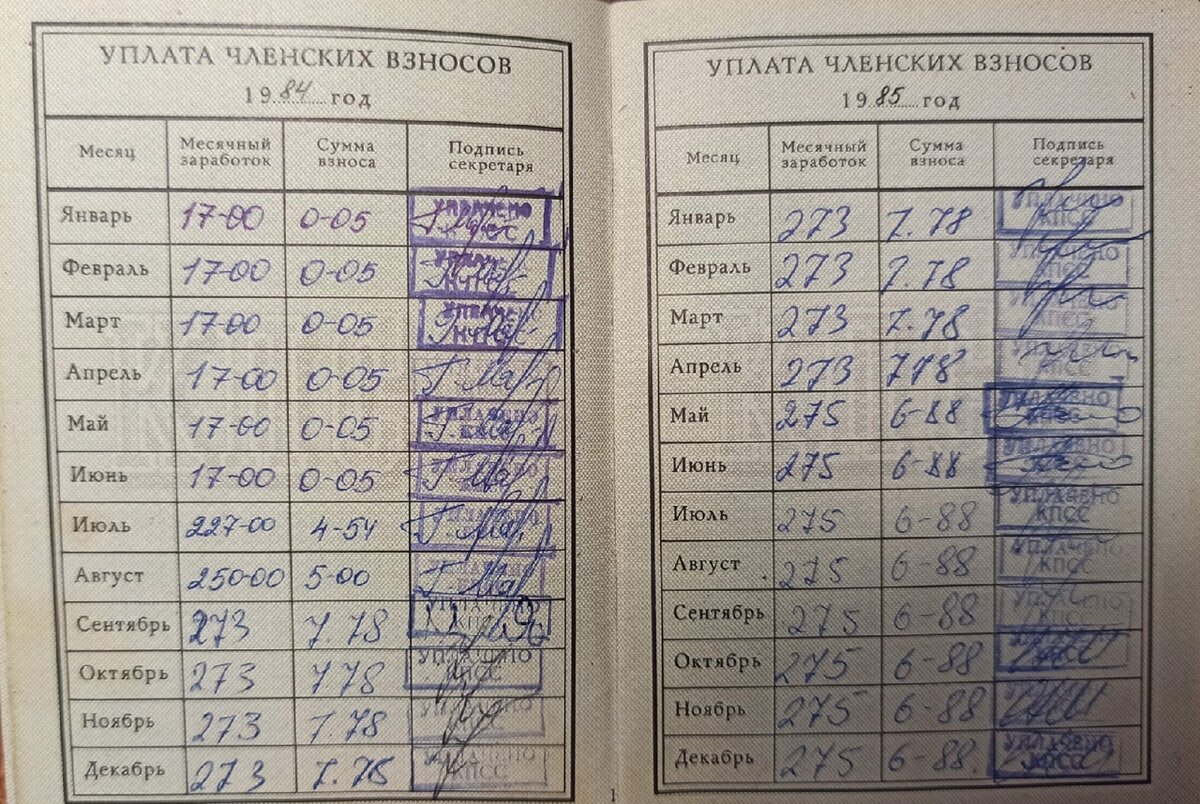 УПЛАТА ЧЛЕНСКИХ ВЗНОСОВ
1984 год
Месяц Месячный заработок Сумма взноса Подпись секретаря
Январь 17-00 0-05 УПЛАЧЕНО
Февраль 17-00 0-05
Март 17-00 0-05
Апрель 17-00 0-05
Май 17-00 0-05 УПЛАЧЕНО КПСС
Июнь 17-00 0-05 УПЛАЧЕНО
Июль 227-00 4-54 УПЛАЧЕНО
Август 250-00 5-00 УПЛАЧЕНО
Сентябрь 273 7.78
Октябрь 273 7.78 УПЛАЧЕНО КПСС
Ноябрь 273 7.78 УПЛАЧЕНО
Декабрь 273 7.78 УПЛАЧЕНО КПСС
1
УПЛАТА ЧЛЕНСКИХ ВЗНОСОВ
1985 год
Месяц Месячный заработок Сумма взноса Подпись секретаря
Январь 273 7.78 УПЛАЧЕНО КПСС
Февраль 273 7.78 УПЛАЧЕНО КПСС
Март 273 7.78 УПЛАЧЕНО КПСС
Апрель 273 7.78 УПЛАЧЕНО КПСС
Май 275 6-88 УПЛАЧЕНО КПСС
Июнь 275 6-88 УПЛАЧЕНО
Июль 275 6-88 УПЛАЧЕНО КПСС
Август 275 6-88 УПЛАЧЕНО КПСС
Сентябрь 275 6-88 УПЛАЧЕНО КПСС
Октябрь 275 6-88
Ноябрь 275 6-88
Декабрь 275 6-88 УПЛАЧЕНО КПСС